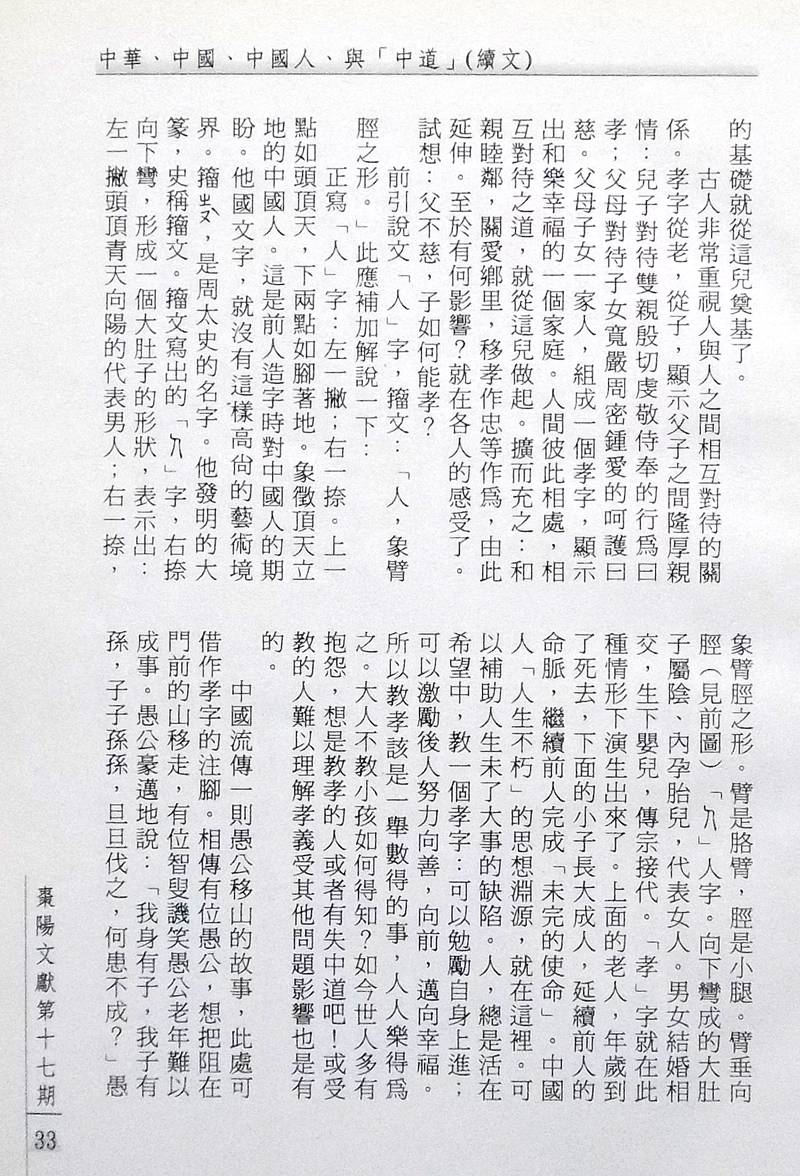 中華、中國、中國人、與「中道」(續文)
的基礎就從這兒奠基了。
古人非常重視人與人之間相互對待的關
係。孝字從老，從子，顯示父子之間隆厚親
情：兒子對待雙親殷切虔敬侍奉的行為曰
孝；父母對待子女寬嚴周密鍾愛的呵護曰
慈。父母子女一家人，組成一個孝字，顯示
出和樂幸福的一個家庭。人間彼此相處，相
互對待之道，就從這兒做起。擴而充之：和
親睦鄰，關愛鄉里，移孝作忠等作為，由此
延伸。至於有何影響？就在各人的感受了。
試想：父不慈，子如何能孝？
前引說文「人」字，籀文：「人，象臂
脛之形。」此應補加解說一下：
正寫「人」字：左一撇；右一捺。上一
點如頭頂天，下兩點如腳著地。象徵頂天立
地的中國人。這是前人造字時對中國人的期
盼。他國文字，就沒有這樣高尚的藝術境
界。籀ㄓㄡˋ，是周太史的名字。他發明的大
篆，史稱籀文。籀文寫出的「𠆢」字，右捺
向下彎，形成一個大肚子的形狀，表示出：
左一撇頭頂青天向陽的代表男人；右一捺，
象臂脛之形。臂是胳臂，脛是小腿。臂垂向
脛（見前圖）「𠆢」人字。向下彎成的大肚
子屬陰、內孕胎兒，代表女人。男女結婚相
交，生下嬰兒，傳宗接代。「孝」字就在此
種情形下演生出來了。上面的老人，年歲到
了死去，下面的小子長大成人，延續前人的
命脈，繼續前人完成「未完的使命」。中國
人「人生不朽」的思想淵源，就在這裡。可
以補助人生未了大事的缺陷。人，總是活在
希望中，教一個孝字：可以勉勵自身上進；
可以激勵後人努力向善，向前，邁向幸福。
所以教孝該是一舉數得的事，人人樂得為
之。大人不教小孩如何得知？如今世人多有
抱怨，想是教孝的人或者有失中道吧！或受
教的人難以理解孝義受其他問題影響也是有
的。
中國流傳一則愚公移山的故事，此處可
借作孝字的注腳。相傳有位愚公，想把阻在
門前的山移走，有位智叟譏笑愚公老年難以
成事。愚公豪邁地說：「我身有子，我子有
孫，子子孫孫，旦旦伐之，何患不成？」愚
棗陽文獻第十七期
33